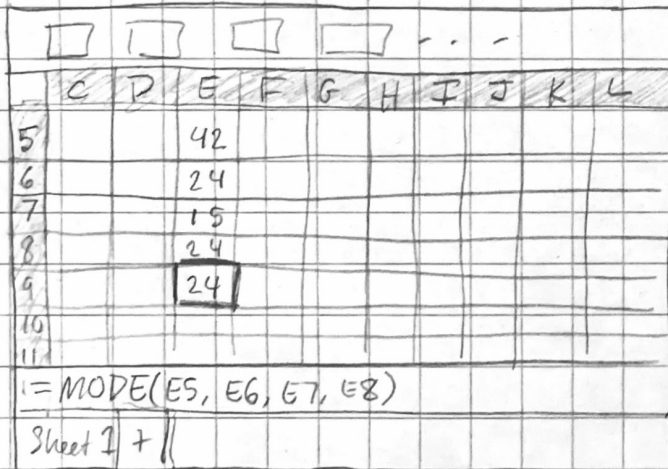 C D E F G H I J K L
5 42
6 24
7 15
8 24
9 24
10
11
=MODE(E5, E6, E7, E8)
Sheet 1 +